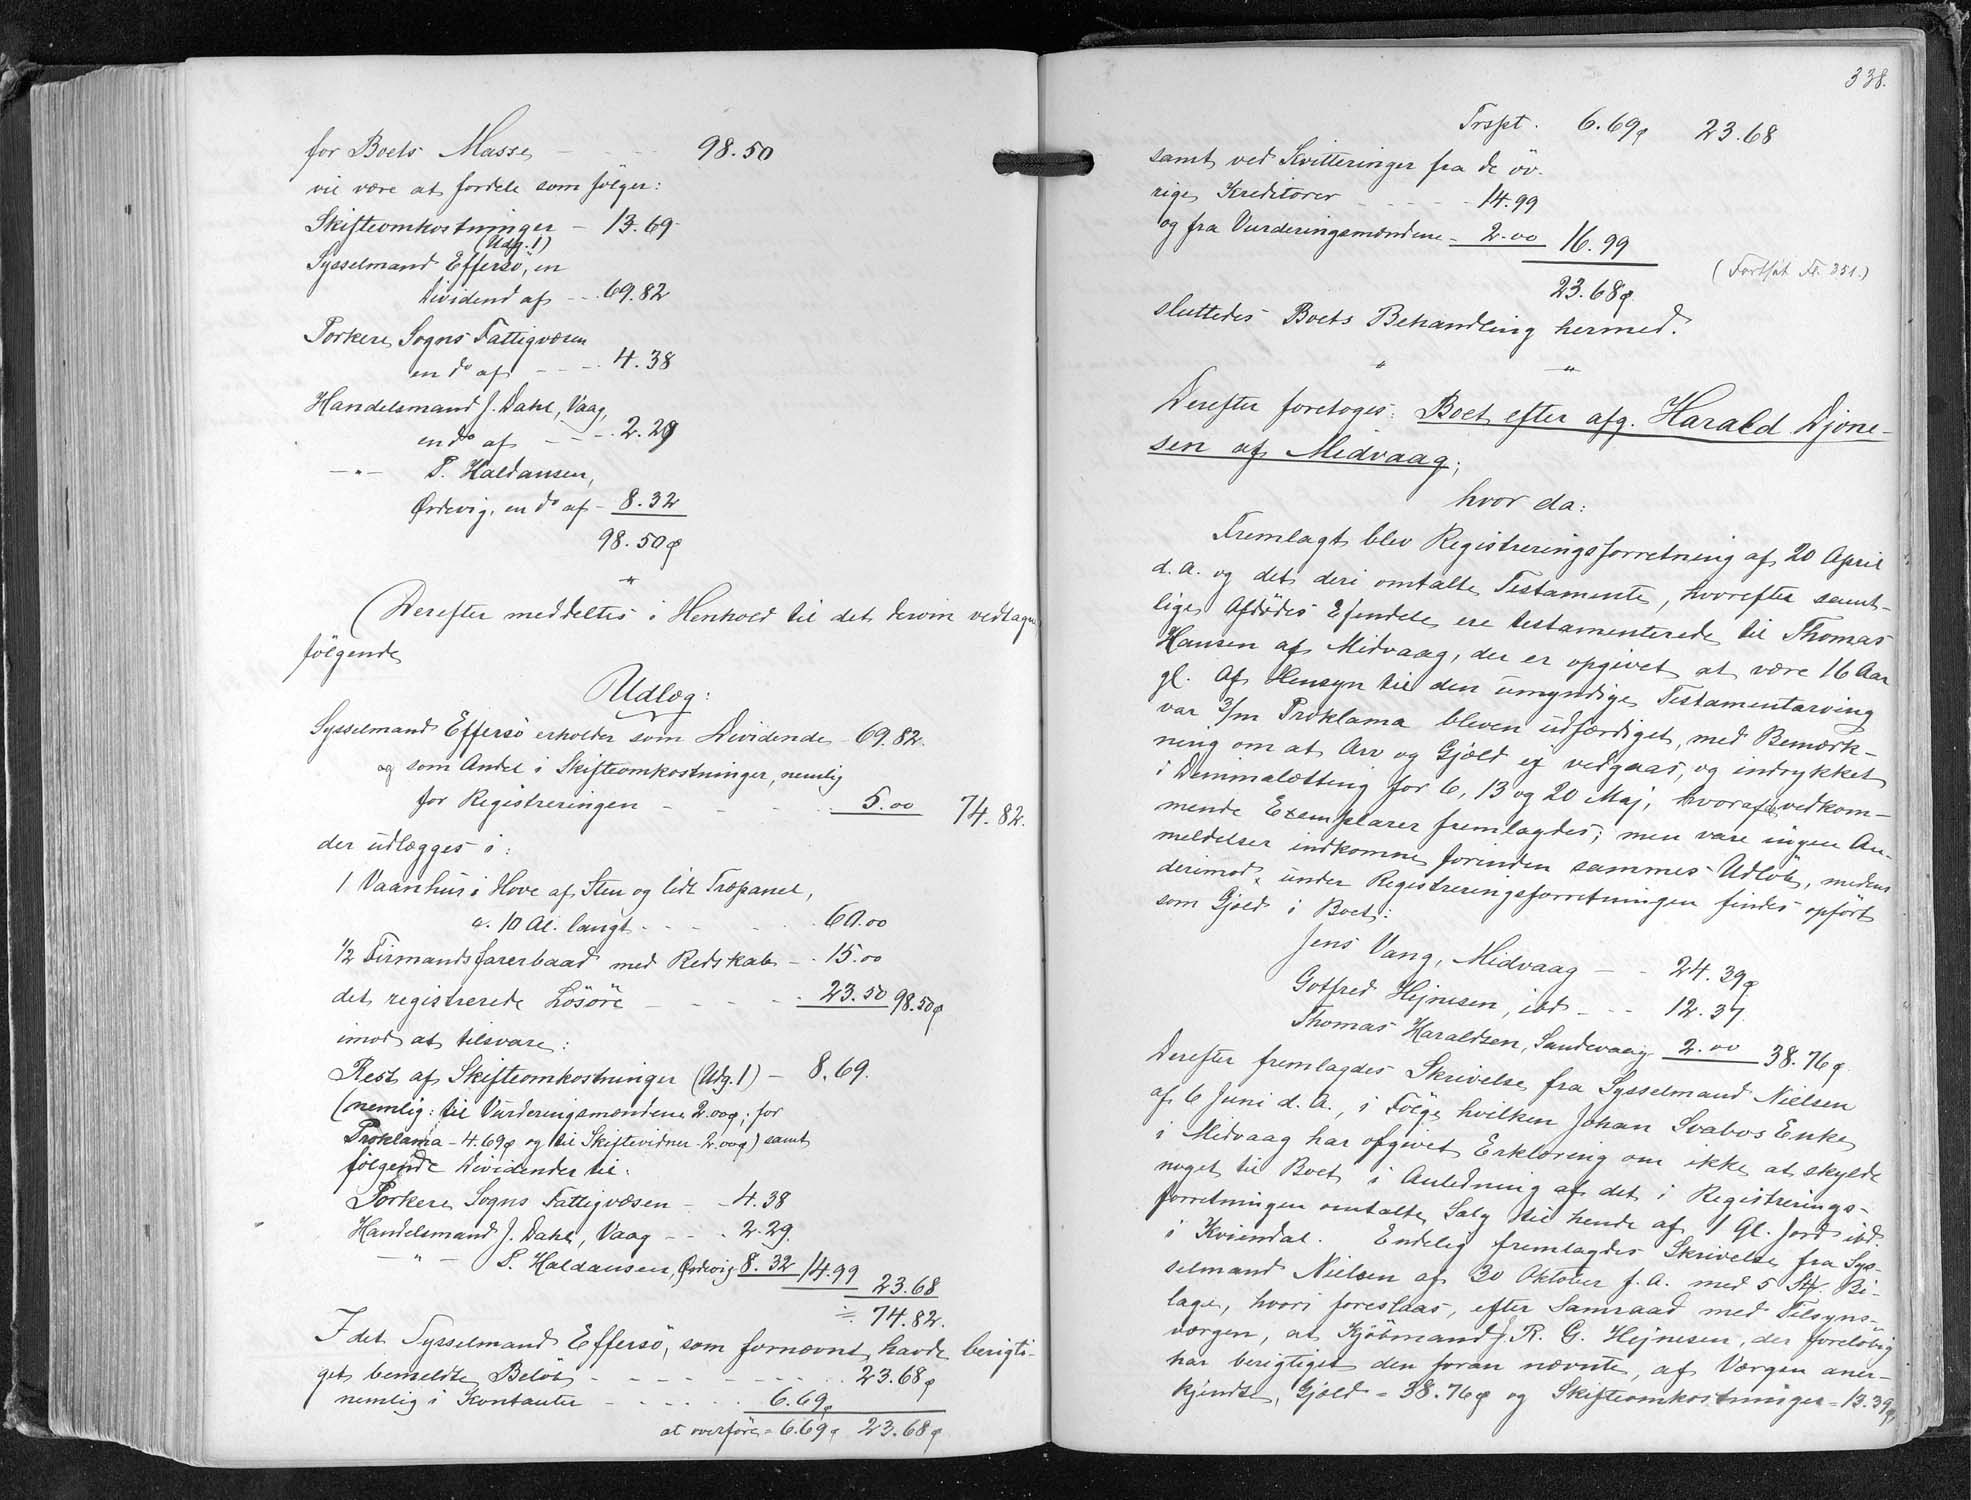 for Boets Masse - - 98.50
vil være at fordele som følger:
Skifteomkostninger - 13.69
(Udg. 1)
Sysselmand Effersö, en
Dividend af - - 69.82
Porkere Sogns Fattigvæsen
en do af - - - 4.38
Handelsmand J. Dahl, Vaag,
en do af - - - 2.29
- " - P. Haldansen,
Ørdevig, en do af - 8.32
98.50
Derefter meddeltes i Henhold til det derom vedtagne
følgende
Udlæg:
Sysselmand Effersö erholder som Dividende 69.82
og som Andel i Skifteomkostninger, nemlig
for Registreringen - - - 5.00 74.82.
der udlægges i:
1 Vaanhus i Hove af Sten og lidt Træpanel,
c. 10 Al. langt - - - 60.00
1/2 Firmandsfarerbaad med Redskab - 15.00
det registrerede Lösöre - - - 23.50 98.50
imod at tilsvare:
Rest af Skifteomkostninger (Udg. 1) - 8.69.
(nemlig: til Vurderingsmændene 2.00, for
Proklama - 4.69 og til Skiftevidner 2.00) samt
følgende Dividender til:
Porkere Sogns Fattigvæsen - - 4.38
Handelsmand J. Dahl, Vaag - - - 2.29.
- " - P. Haldansen, Ørdevig 8.32 14.99 23.68
÷ 74.82.
I det Sysselmand Effersö, som fornævnt, havde berigti-
get bemeldte Belöb - - - - 23.68
nemlig i Kontanter - - - - 6.69
at overføre = 6.69 23.68
338.
Trspt. 6.69 23.68
samt ved Kvitteringer fra de öv-
rige Kreditorer - - - - 14.99
og fra Vurderingsmændene - 2.00 16.99
(Fortsat Fl. 351.)
23.68
sluttedes Boets Behandling hermed.
" "
Derefter foretoges: Boet efter afg. Harald Djone-
sen af Midvaag;
hvor da:
Fremlagt blev Registreringsforretning af 20 April
d.A. og det deri omtalte Testamente, hvorefter samt-
lige Afdødes Ejendele ere testamenterede til Thomas
Hansen af Midvaag, der er opgivet at være 16 Aar
gl. Af Hensyn til den umyndige Testamentarving
var 3/m Proklama bleven udfærdiget, med Bemærk-
ning om at Arv og Gjæld ej vedgaas, og indrykket
i Dimmalætting for 6, 13 og 20 Maj, hvoraf vedkom-
mende Exemplarer fremlagdes; men vare ingen An-
meldelser indkomne forinden sammes Udløb, medens
derimod under Registreringsforretningen findes opført
som Gjæld i Boet:
Jens Vang, Midvaag - - 24.39
Gotfred Hejnesen, ibd - - - 12.37
Thomas Haraldsen, Sandevaag 2.00 38.76
Derefter fremlagdes Skrivelse fra Sysselmand Nielsen
af 6 Juni d.A., i Følge hvilken Johan Svabos Enke
i Midvaag har afgivet Erklæring om ikke at skylde
noget til Boet i Anledning af det i Registrerings-
forretningen omtalte Salg til hende af 1 Gl. Jord ibd.
i Kviendal. Endelig fremlagdes Skrivelse fra Sys-
selmand Nielsen af 30 Oktober f.A. med 5 Stk. Bi-
lage, hvori foreslaas, efter Samraad med Tilsyns-
værgen, at Kjöbmand J. R. G. Hejnesen, der foreløbig
har berigtiget den foran nævnte, af Værgen aner-
kjendte, Gjæld = 38.76 og Skifteomkostninger = 13.39